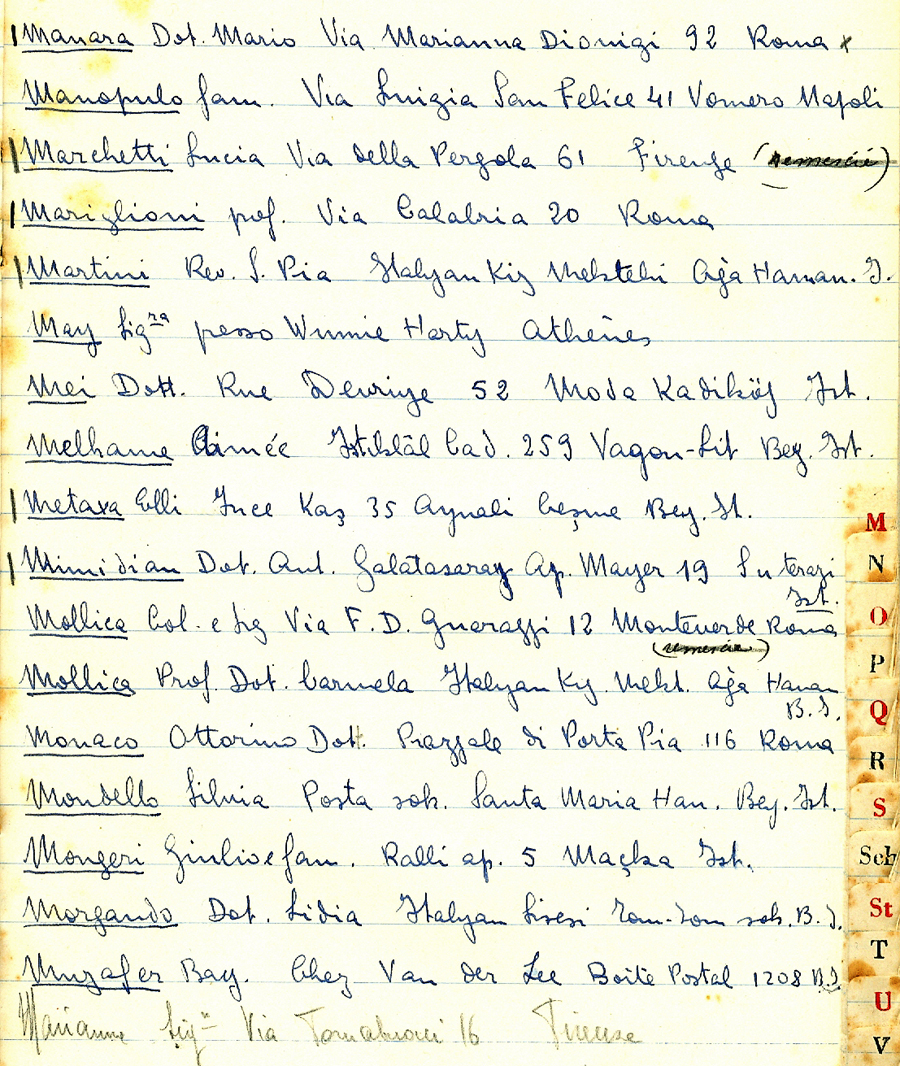 Manara Dot. Mario Via Marianna Dionigi 92 Roma x
Manopulo fam. Via Luigia San Felice 41 Vomero Napoli
Marchetti Lucia Via della Pergola 61 Firenze (remercié)
Mariglioni prof. Via Calabria 20 Roma
Martini Rev. S. Pia Italyan Kiz Mektebi Ağa Haman. I.
May Sig.ra presso Winnie Harty Athènes
Mei Dott. Rue Devriye 52 Moda Kadiköy Ist.
Melhame Aimée Istiklâl Cad. 259 Vagon-Lit Bey. Ist.
Metaxa Elli Ince Kaş 35 Aynali Ceşme Bey. Ist.
Mimidian Dot. Ant. Galatasaray Ap. Mayer 19 Su terazi
Ist.
Mollica Col. e Sig Via F. D. Guerazzi 12 Monteverde Roma
(remercié)
Mollica Prof. Dot. Carmela Italyan Kiz. Mekt. Ağa Haman
B. I.
Monaco Ottorino Dott. Piazzale di Porta Pia 116 Roma
Mondello Silvia Posta sok. Santa Maria Han. Bey. Ist.
Mongeri Giulio e fam. Ralli ap. 5 Maçka Ist.
Morgando Dot. Lidia Italyan Lisesi Tom-Tom sok. B. I.
Muzafer Bay. Chez Van der Lee Boite Postal 1208 B.I.
Marianne Sig.na Via Tornabuoni 16 Firenze
M
N
O
P
Q
R
S
Sch
St
T
U
V